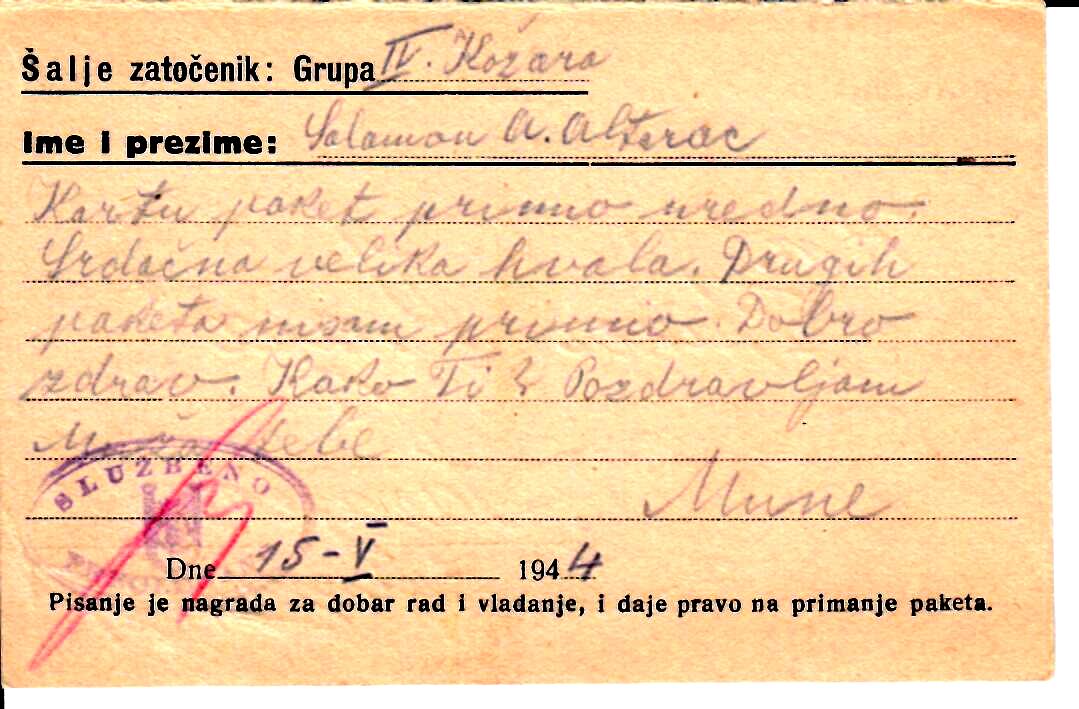 Šalje zatočenik: Grupa IV. Kožara
Ime i prezime: Salamon A. Alterac
Kartu paket primio uredno.
Srdačna velika hvala. Drugih
paketa nisam primio. Dobro
zdrav. Kako Ti? Pozdravljam
tebe
Mune
SLUŽBENO
Dne 15-V 1944
Pisanje je nagrada za dobar rad i vladanje, i daje pravo na primanje paketa.